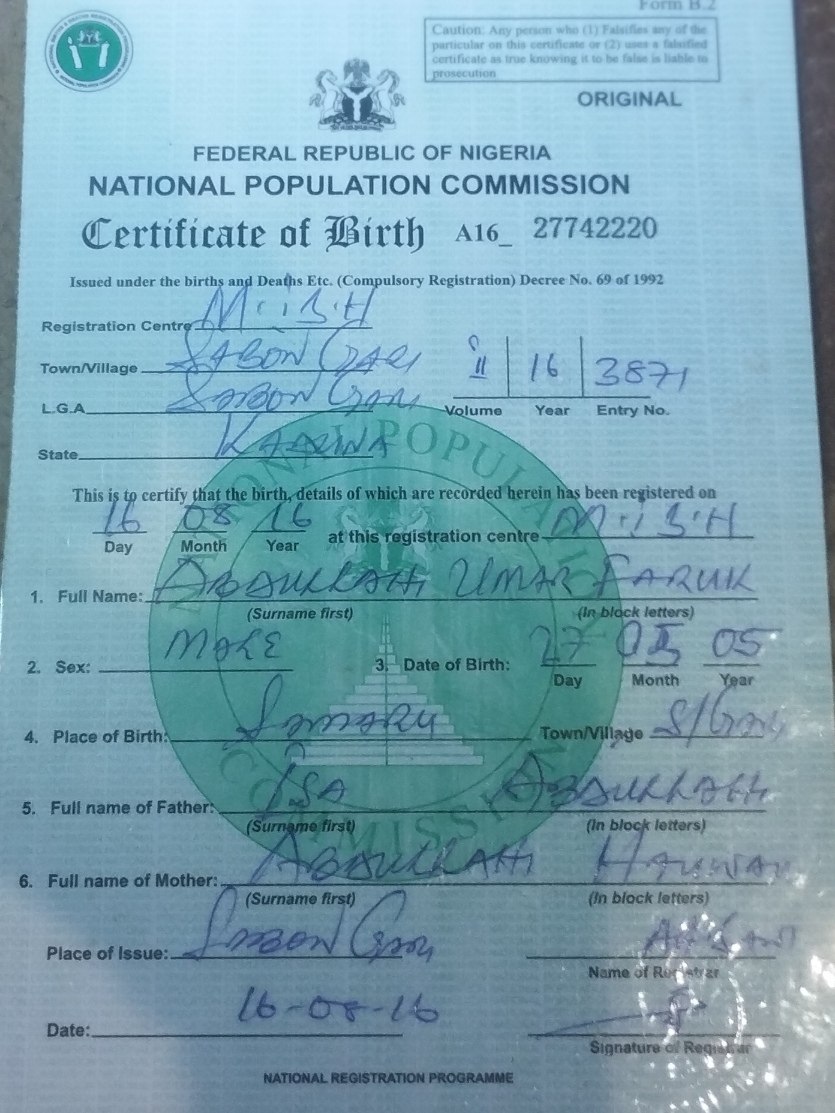 Form B.2
Caution: Any person who (1) Falsifies any of the
particular on this certificate or (2) uses a falsified
certificate as true knowing it to be false is liable to
prosecution
ORIGINAL
FEDERAL REPUBLIC OF NIGERIA
NATIONAL POPULATION COMMISSION
Certificate of Birth A16_ 27742220
Issued under the births and Deaths Etc. (Compulsory Registration) Decree No. 69 of 1992
Registration Centre
Town/Village SABON GARI
II 16 3871
L.G.A SABON GARI
Volume Year Entry No.
State KADUNA
This is to certify that the birth, details of which are recorded herein has been registered on
16 08 16 at this registration centre
Day Month Year
1. Full Name: ABDULLAHI UMAR FARUK
(Surname first) (In block letters)
2. Sex: MALE 3. Date of Birth: 27 05
Day Month Year
4. Place of Birth: SAMARU Town/Village S/GARI
5. Full name of Father: ISA ABDULLAHI
(Surname first) (In block letters)
6. Full name of Mother: ABDULLAHI
(Surname first) (In block letters)
Place of Issue: SABON GARI
Name of Registrar
Date: 16-08-16
Signature of Registrar
NATIONAL REGISTRATION PROGRAMME
NATIONAL POPULATION COMMISSION